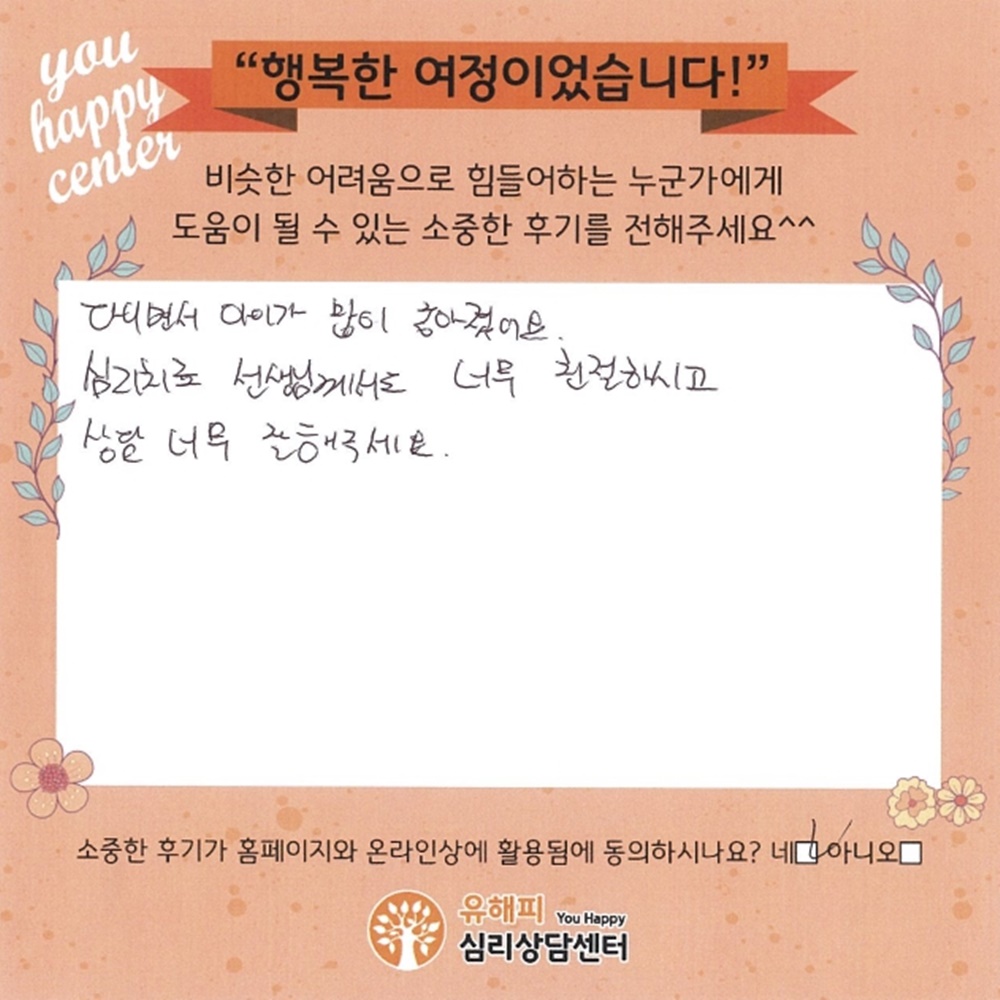 you
happy
center
“행복한 여정이었습니다!”
비슷한 어려움으로 힘들어하는 누군가에게
도움이 될 수 있는 소중한 후기를 전해주세요^^
다니면서 아이가 많이 좋아졌어요.
심리치료 선생님께서도 너무 친절하시고
상담 너무 잘해주세요.
소중한 후기가 홈페이지와 온라인상에 활용됨에 동의하시나요? 네☑ 아니오□
유해피 You Happy
심리상담센터